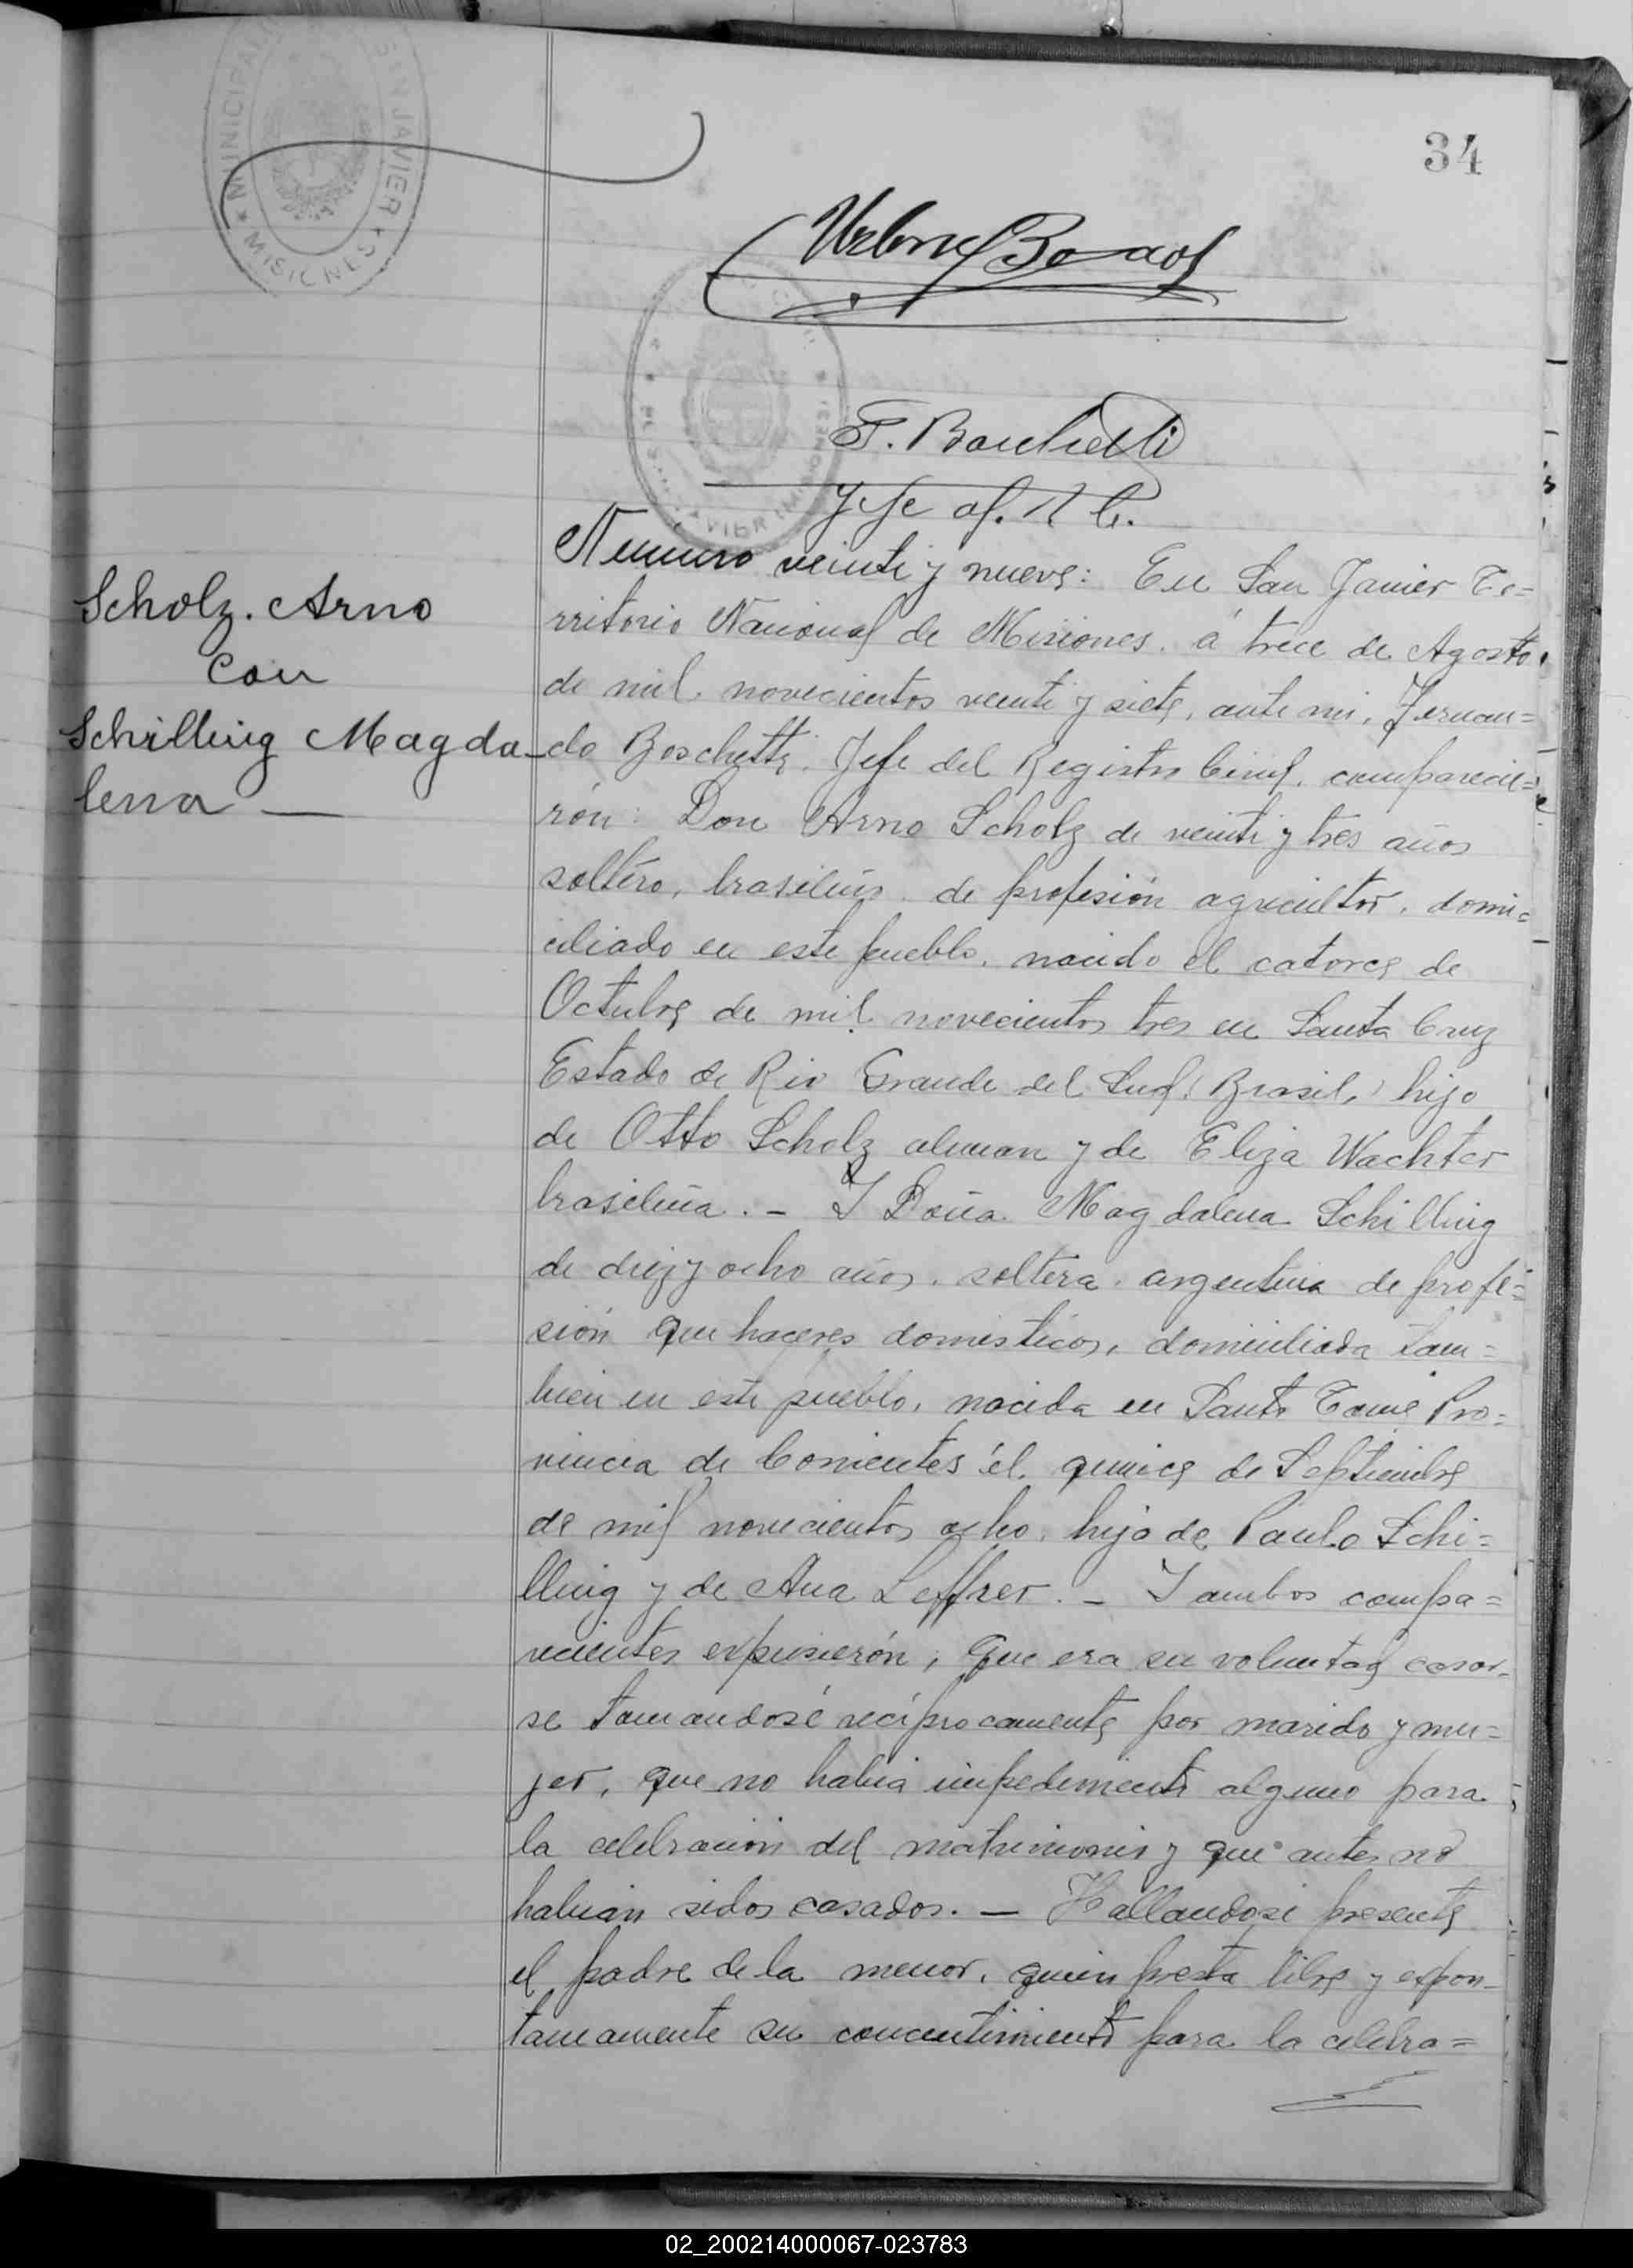 34
MUNICIPALI
SAN JAVIER
MISIONES
F. Boschetti
Jefe of. R C.
Scholz. Arno
con
Schilling Magda-
lena —
Número veinte y nueve: En San Javier Te=
rritorio Nacional de Misiones. á trece de Agosto
de mil novecientos veinte y siete, ante mi, Fernan=
do Boschetti, Jefe del Registro Civil, comparecie=
rón: Don Arno Scholz de veinte y tres años
soltéro, brasileño de profesión agricultor, domi=
ciliado en este pueblo, nacido el catorce de
Octubre de mil novecientos tres en Santa Cruz
Estado de Rio Grande del Sud (Brasil,) hijo
de Otto Scholz aleman y de Eliza Wachter
brasileña. - Y Doña Magdalena Schilling
de diez y ocho años, soltera, argentina de profe=
sión que haceres domesticos, domiciliada tam=
bien en este pueblo, nacida en Santo Tomé Pro=
vincia de Corrientes él quince de Septiembre
de mil novecientos ocho, hija de Paulo Schi=
lling y de Ana Leffrer. - Y ambos compa=
recientes expusierón; que era su voluntad casar-
se tomandosé recíprocamente por marido y mu=
jer, que no habia impedimento alguno para
la celebración del matrimonio y que antes no
habian sidos casados. — Hallandose presente
el padre de la menor, quien presta libre y expon-
taneamente su concentimiento para la celebra=
02_200214000067-023783